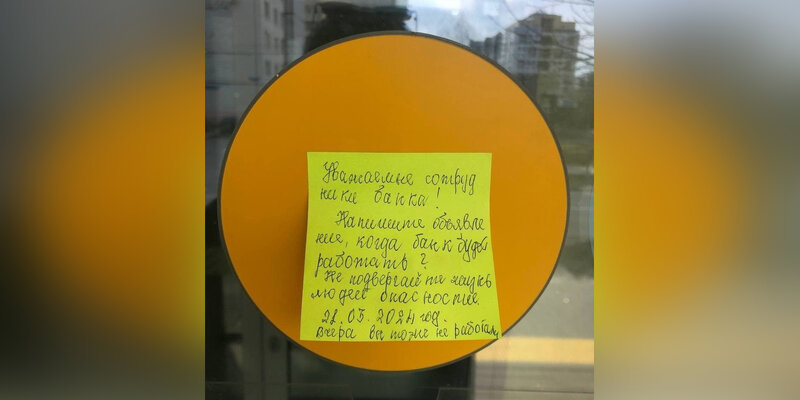 Уважаемые сотруд
ники банка!
Напишите объявле
ние, когда банк будет
работать?
Не подвергайте жизнь
людей опасности.
21.03.2024 год.
Вчера вы тоже не работали